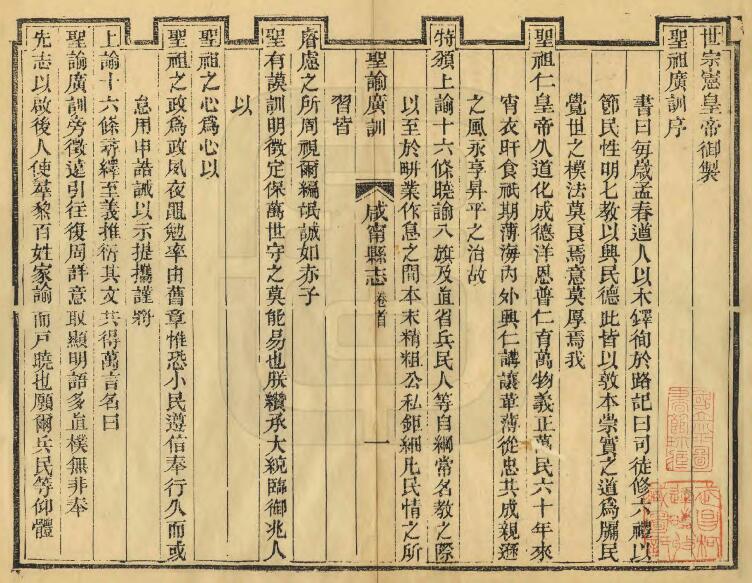 世宗憲皇帝御製
聖祖廣訓序
書曰每歲孟春遒人以木鐸徇於路記曰司徒修六禮以
節民性明七教以興民德此皆以敦本崇實之道為牖民
覺世之模法莫良焉意莫厚焉我
聖祖仁皇帝久道化成德洋恩普仁育萬物義正萬民六十年來
宵衣旰食祇期薄海內外興仁講讓革薄從忠共成親遜
之風永享昇平之治故
特頒上諭十六條曉諭八旗及直省兵民人等自綱常名教之際
以至於耕業作息之間本末精粗公私鉅細凡民情之所
習皆
聖諭廣訓
咸甯縣志 卷首
一
睿慮之所周視爾編氓誠如赤子
聖有謨訓明徵定保萬世守之莫能易也朕纘承大統臨御兆人
以
聖祖之心為心以
聖祖之政為政夙夜黽勉率由舊章惟恐小民遵信奉行久而或
怠用申誥誡以示提攜謹將
上諭十六條尋繹至義推衍其文共得萬言名曰
聖諭廣訓旁徵遠引往復周詳意取顯明語多直樸無非奉
先志以啟後人使羣黎百姓家諭而戶曉也願爾兵民等仰體